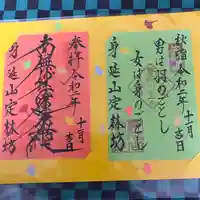 秋詣 令和二年 十一月吉日
男は羽のごとし
女は身のごとし
身延山 定林坊
奉拝 令和二年 十一月吉日
南無妙法蓮華経
身延山 定林坊